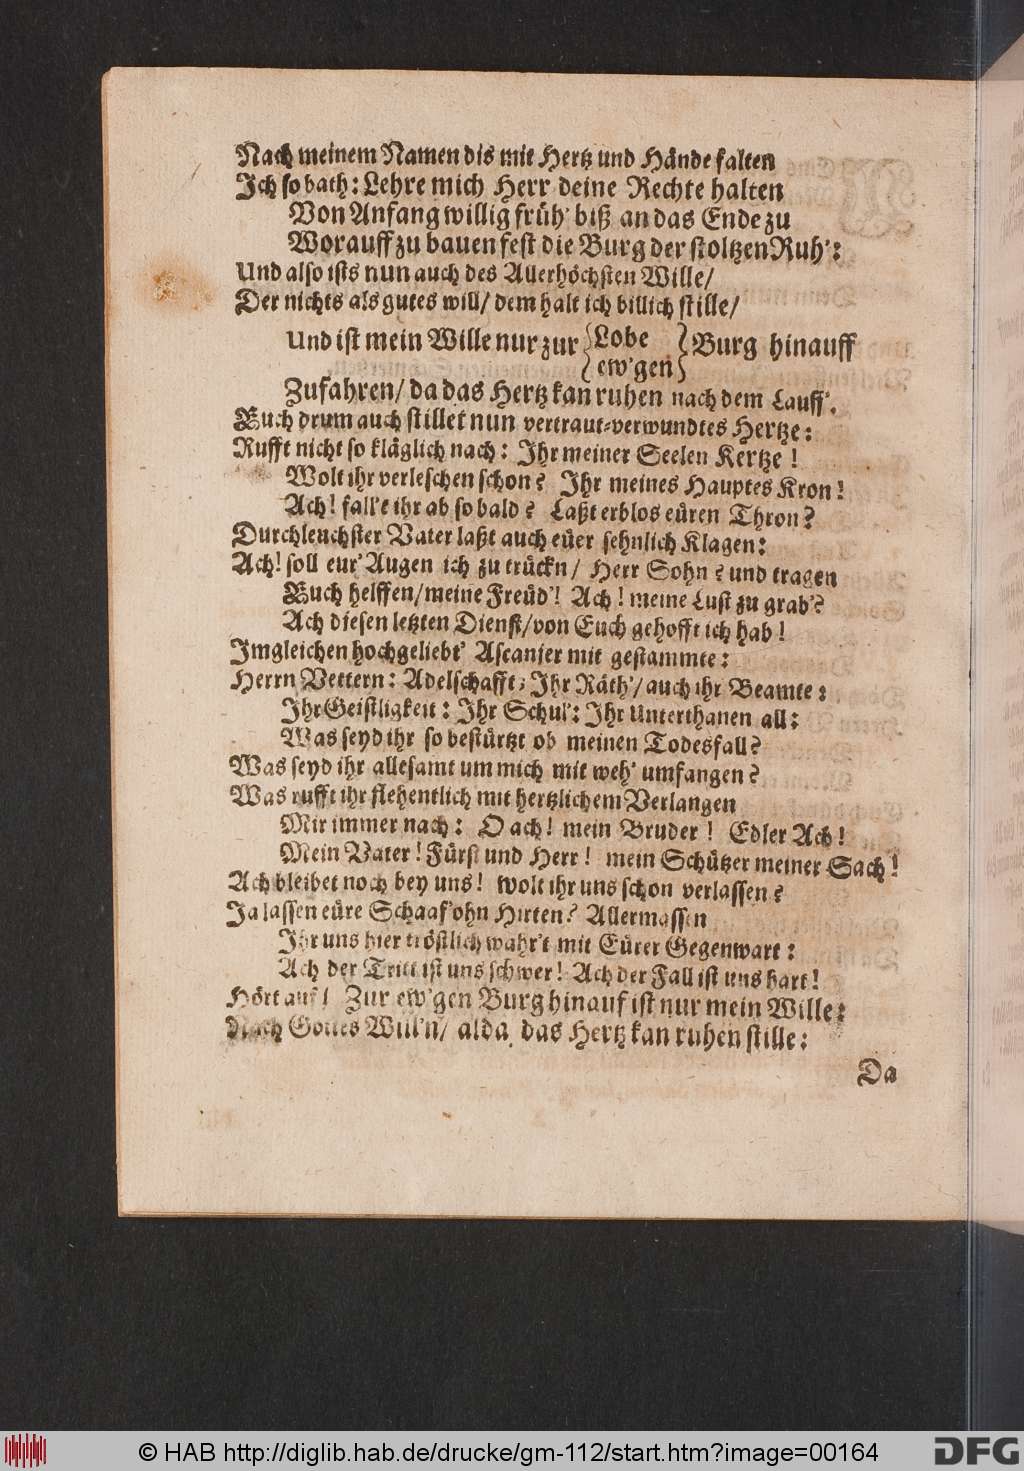 Nach meinem Namen dis mit Hertz und Hände falten
Ich so bath: Lehre mich Herr deine Rechte halten
Von Anfang willig früh' biß an das Ende zu
Worauff zu bauen fest die Burg der stoltzen Ruh':
Und also ists nun auch des Allerhöchsten Wille/
Der nichts als gutes will/ dem halt ich billich stille/
Und ist mein Wille nur zur {Lobe / ew'gen} Burg hinauff
Zufahren/ da das Hertz kan ruhen nach dem Lauff'.
Euch drum auch stillet nun vertraut-verwundtes Hertze:
Rufft nicht so kläglich nach: Ihr meiner Seelen Kertze!
Wolt ihr verleschen schon? Ihr meines Hauptes Kron!
Ach! fall't ihr ab so bald? Laßt erblos eüren Thron?
Durchleuchster Vater laßt auch eüer sehnlich Klagen:
Ach! soll eur' Augen ich zu trückn/ Herr Sohn? und tragen
Euch helffen/ meine Freüd'! Ach! meine Lust zu grab'?
Ach diesen letzten Dienst/ von Euch gehofft ich hab!
Imgleichen hochgeliebt' Ascanier mit gestammte:
Herrn Vettern: Adelschafft; Ihr Räth'/ auch ihr Beamte:
Ihr Geistligkeit: Ihr Schul': Ihr Unterthanen all:
Was seyd ihr so bestürtzt ob meinen Todesfall?
Was seyd ihr allesamt um mich mit weh' umfangen?
Was rufft ihr flehentlich mit hertzlichem Verlangen
Mir immer nach: O ach! mein Bruder! Edler Ach!
Mein Vater! Fürst und Herr! mein Schützer meiner Sach!
Ach bleibet noch bey uns! wolt ihr uns schon verlassen?
Ja lassen eüre Schaaf' ohn Hirten? Allermassen
Ihr uns hier tröstlich wahr't mit Eürer Gegenwart:
Ach der Tritt ist uns schwer! Ach der Fall ist uns hart!
Hört auf! Zur ew'gen Burg hinauf ist nur mein Wille:
Nach Gottes Will'n/ alda das Hertz kan ruhen stille:
Da
© HAB http://diglib.hab.de/drucke/gm-112/start.htm?image=00164
DFG